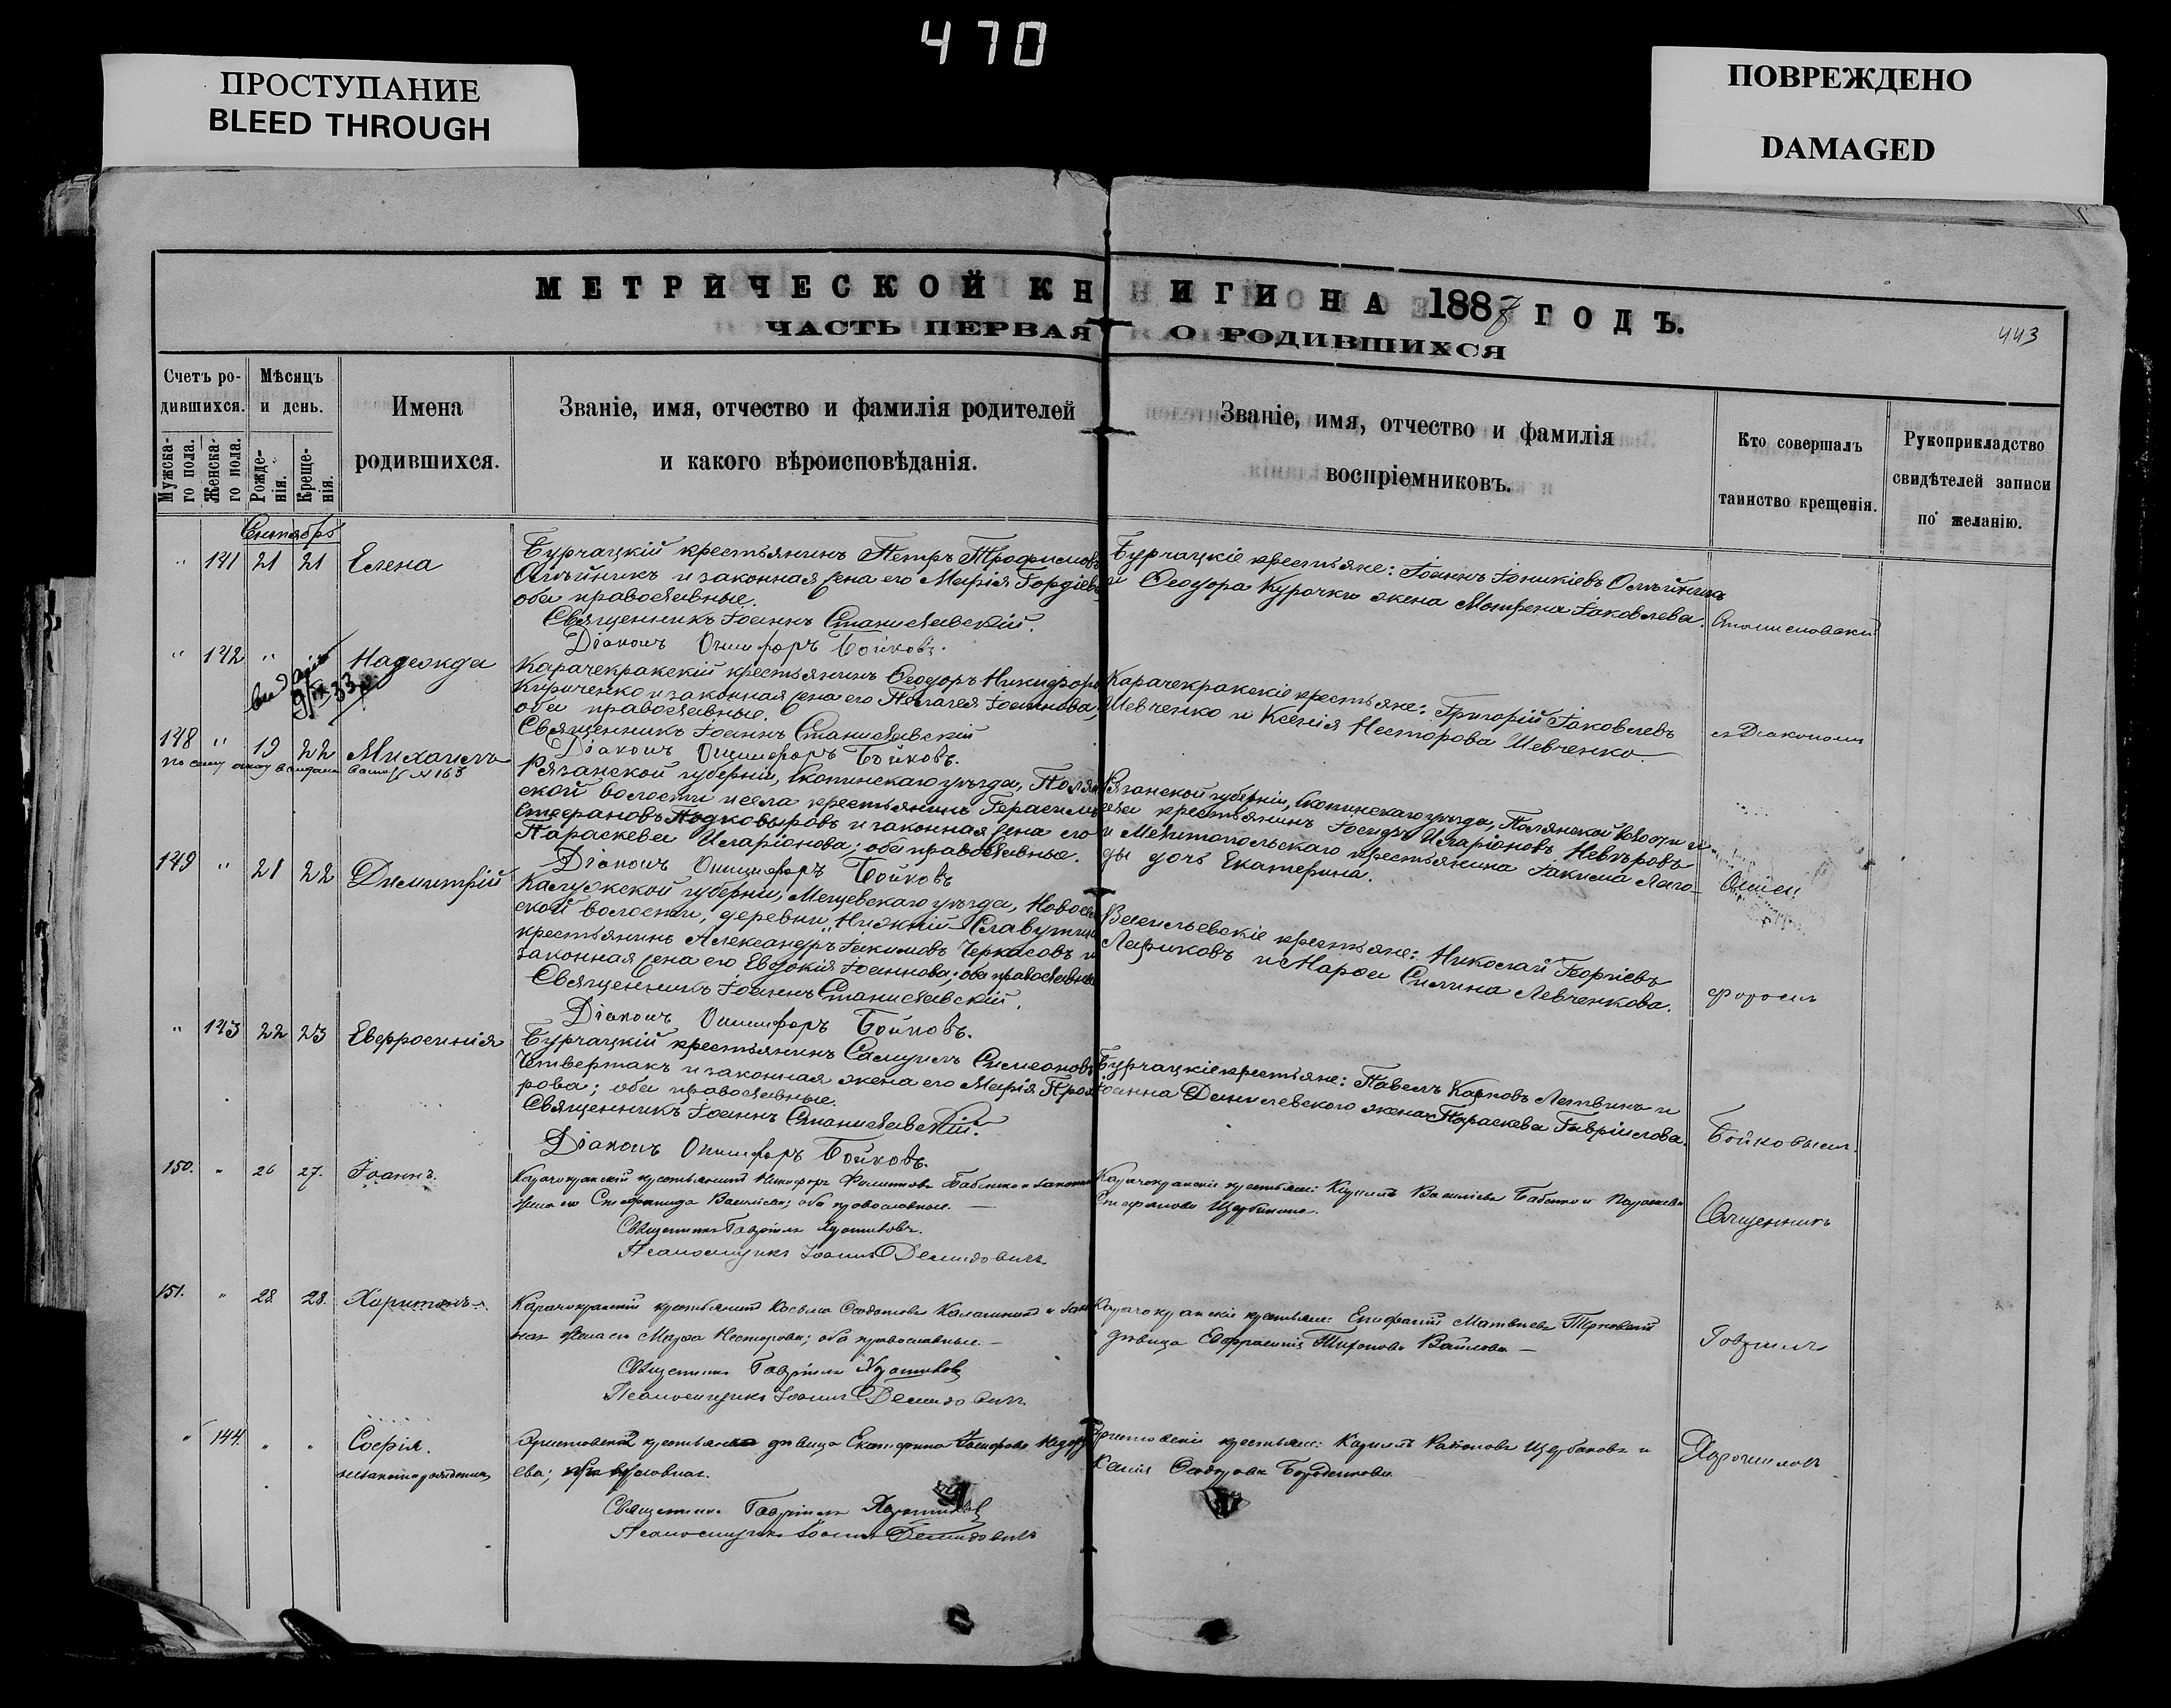 470
ПРОСТУПАНИЕ
BLEED THROUGH
ПОВРЕЖДЕНО
DAMAGED
МЕТРИЧЕСКОЙ КНИГИ НА 1887 ГОДЪ.
ЧАСТЬ ПЕРВАЯ О РОДИВШИХСЯ
443
Счетъ родившихся.
Мужскаго пола.
Женскаго пола.
Мѣсяцъ и день.
Рожденія.
Крещенія.
Имена родившихся.
Званіе, имя, отчество и фамилія родителей
и какого вѣроисповѣданія.
Званіе, имя, отчество и фамилія
воспріемниковъ.
Кто совершалъ
таинство крещенія.
Рукоприкладство
свидѣтелей записи
по желанію.
Сентябрь
" 141 21 21 Елена
Бурчацкій крестьянинъ Петръ Трофимовъ
Олѣйникъ и законная жена его Марія Гордіева
оба православные.
Священникъ Іоаннъ Станиславскій.
Діаконъ Онисифоръ Бойковъ.
Бурчацкіе крестьяне: Іоаннъ Іоникіевъ Олѣйникъ
и Ѳеодора Курочки жена Матрена Іаковлева.
" 142 " " Надежда
Карачекракскій крестьянинъ Ѳеодоръ Никифоро
Кириченко и законная жена его Пелагея Іоаннова,
оба православные.
Священникъ Іоаннъ Станиславскій
Діаконъ Онисифоръ Бойковъ.
Карачекракскіе крестьяне: Григорій Іаковлевъ
Шевченко и Ксенія Несторова Шевченко.
съ Діакономъ
148 " 19 22 Михаилъ
Рязанской губерніи, Скопинскаго уѣзда, Полян
ской волости и села крестьянинъ Герасимъ
Стефановъ Подковыровъ и законная жена его
Параскева Иларіонова; оба православные.
Діаконъ Онисифоръ Бойковъ
Рязанской губерніи, Скопинскаго уѣзда, Полянской волости и
села крестьянинъ Іосифъ Иларіоновъ Невѣровъ
и Мелитопольскаго крестьянина Іакима Лаго
ды дочь Екатерина.
149 " 21 22 Димитрій
Калужской губерніи, Мещевскаго уѣзда, Новосел
ской волости, деревни Нижній Славутин
крестьянинъ Александръ Іакимовъ Черкасовъ и
законная жена его Евдокія Іоаннова; оба православные
Священникъ Іоаннъ Станиславскій.
Діаконъ Онисифоръ Бойковъ.
Васильевскіе крестьяне: Николай Георгіевъ
и Марѳа Силина Левченкова.
" 143 22 23 Евфросинія
Бурчацкій крестьянинъ Самуилъ Симеоновъ
Четвертакъ и законная жена его Марія Прох
рова; оба православные.
Священникъ Іоаннъ Станиславскій.
Діаконъ Онисифоръ Бойковъ.
Бурчацкіе крестьяне: Павелъ Карповъ Летвинъ и
Іоанна Данилевского жена Параскева Гавріилова.
Бойковымъ.
150. " 26 27. Іоаннъ.
Карачокракскій крестьянинъ Никифоръ Филиповъ Бабенко и законная
жена его Стефанида Васильева; оба православные.
Священникъ Гавріилъ
Псаломщикъ Іоаннъ Демидовичъ.
Карачокракскіе крестьяне: Кириллъ Василіевъ Бабенко и Параскева
Стефанова Щербинина.
Священникъ
151. " 28. 28. Харитонъ.
Карачокракскій крестьянинъ Косьма Ѳеодотовъ Калашникъ и закон
ная жена его Марѳа Несторова; оба православные.
Священникъ Гавріилъ
Псаломщикъ Іоаннъ Демидовичъ.
Карачокракскіе крестьяне: Епифаній Матвѣевъ
дѣвица Евфросинія
Гавріилъ
" 144. " " Софія.
незаконнорожденная
крестьянская дѣвица Екатерина
ева; православная.
Священникъ Гавріилъ
Псаломщикъ Іоаннъ Демидовичъ
крестьяне: Кириллъ Щербаковъ и
Ксенія Ѳеодорова